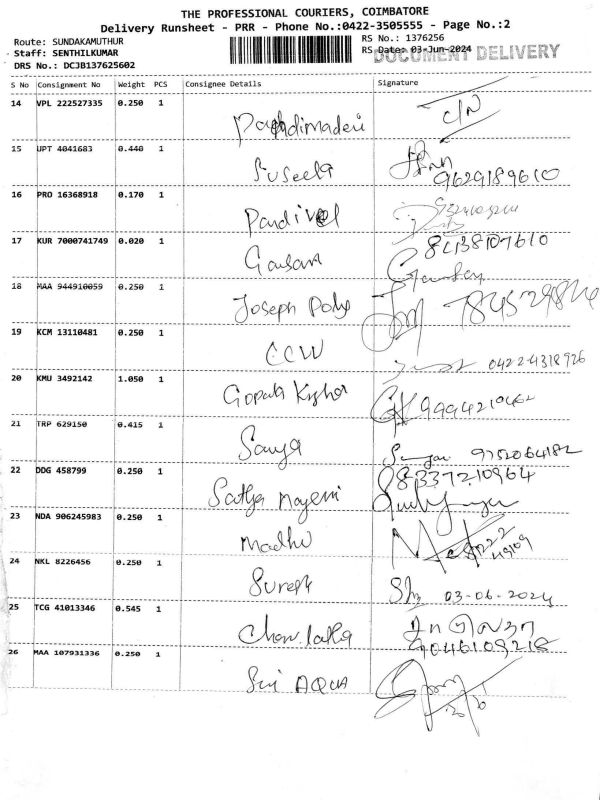 THE PROFESSIONAL COURIERS, COIMBATORE
Delivery Runsheet - PRR - Phone No.:0422-3505555 - Page No.:2
Route: SUNDAKAMUTHUR RS No.: 1376256
Staff: SENTHILKUMAR RS Date: 03-Jun-2024 DOCUMENT DELIVERY
DRS No.: DCJB137625602
S No Consignment No Weight PCS Consignee Details Signature
14 VPL 222527335 0.250 1
15 UPT 4041683 0.440 1 Suseela 9629189610
16 PRO 16368918 0.170 1 Pandivel
17 KUR 7000741749 0.020 1
18 MAA 944910059 0.250 1 Joseph
19 KCM 13110481 0.250 1 CCW
20 KMU 3492142 1.050 1
21 TRP 629150 0.415 1 Sanya
22 DDG 458799 0.250 1 Sathya 8337210964
23 NDA 906245983 0.250 1 Madhu
24 NKL 8226456 0.250 1 Suresh 03-06-2024
25 TCG 41013346 0.545 1
26 MAA 107931336 0.250 1 Sri AQUA